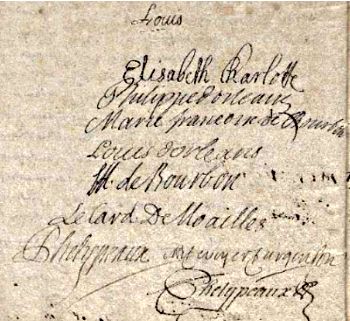 Louis
Elisabeth Charlotte
Philippe d'orleans
Marie francoise de Bourbon
Louis d'orleans
M. de Bourbon
Le Card De Noailles
Phelypeaux
Phelypeaux